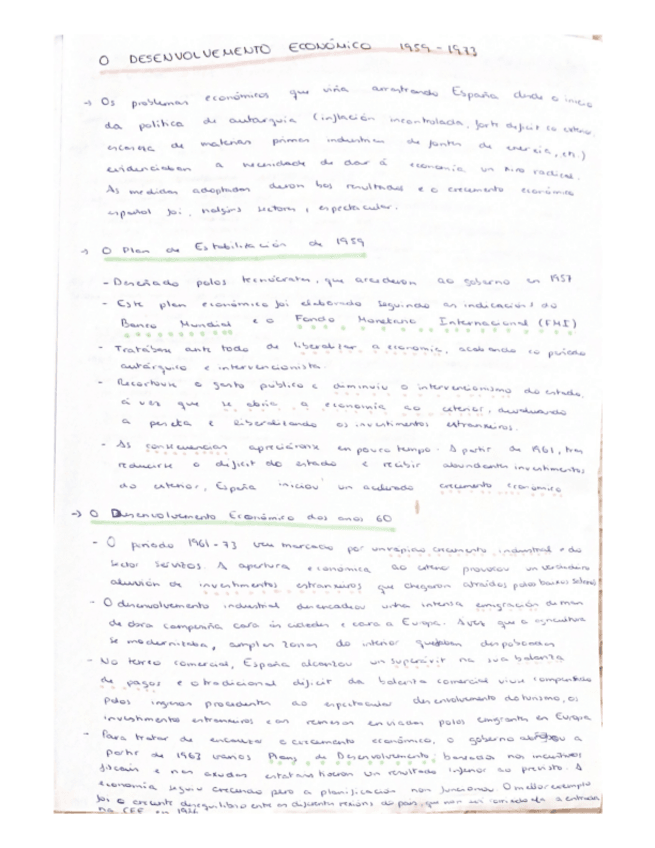 O DESENVOLVEMENTO ECONÓMICO 1959-1973
→ Os problemas económicos que viña arrastrando España dende o inicio
da política de autarquía (inflación incontrolada, forte déficit co exterior,
escaseza de materias primas industriais de fontes de enerxía, etc)
evidenciaban a necesidade de dar á economía un xiro radical.
As medidas adoptadas deron bos resultados e o crecemento económico
español foi, nalgúns sectores, espectacular.
→ O Plan de Estabilización de 1959
- Deseñado polos tecnócratas, que accederon ao goberno en 1957
- Este plan económico foi elaborado seguindo as indicacións do
Banco Mundial e o Fondo Monetario Internacional (FMI)
- Tratábase ante todo de liberalizar a economía, acabando co período
autárquico e intervencionista.
- Recortouse o gasto público e diminuiu o intervencionismo do estado,
á vez que se abría a economía ao exterior, devaluando
a peseta e liberalizando os investimentos estranxeiros.
- As consecuencias apreciáronse en pouco tempo. A partir de 1961, tras
reducirse o déficit do estado e recibir abundantes investimentos
do exterior, España iniciou un acelerado crecemento económico
→ O Desenvolvemento Económico dos anos 60
- O período 1961-73 veu marcado por un rápido crecemento industrial e do
sector servizos. A apertura económica ao exterior provocou un verdadeiro
aluvión de investimentos estranxeiros que chegaron atraídos polos baixos salarios
- O desenvolvemento industrial desencadeou unha intensa emigración de man
de obra campesiña cara ás cidades e cara a Europa. Á vez que a agricultura
se modernizaba, amplas zonas do interior quedaban despoboadas
- No terreo comercial, España alcanzou un superávit na súa balanza
de pagos e o tradicional déficit da balanza comercial viuse compensado
polos ingresos procedentes do espectacular desenvolvemento do turismo, os
investimentos estranxeiros e as remesas enviadas polos emigrantes en Europa
- Para tratar de encauzar o crecemento económico, o goberno abordou a
partir de 1963 varios Plans de Desenvolvemento, baseados nos incentivos
fiscais e nas axudas estatais tiveron un resultado inferior ao previsto. A
economía seguiu crecendo pero a planificación non funcionou. O mellor exemplo
foi o crecente desequilibrio entre as diferentes rexións do país, que non
na CEE en 1986